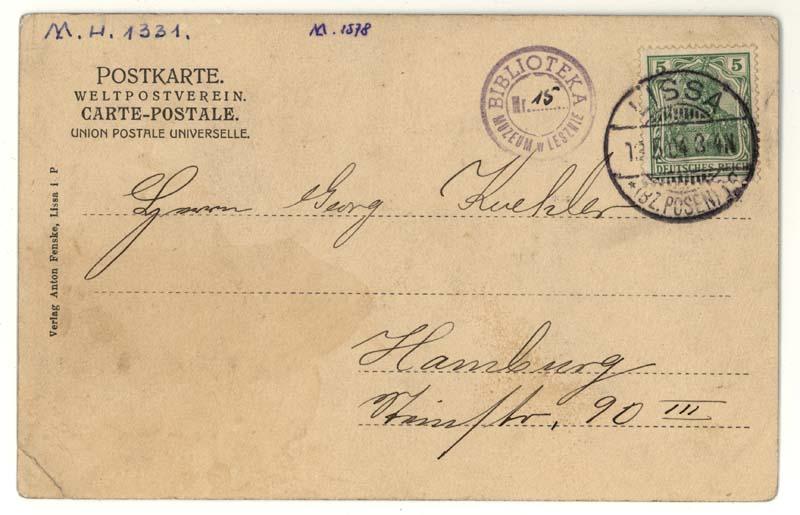 M. H. 1331.
M. 1578
POSTKARTE.
WELTPOSTVEREIN.
CARTE-POSTALE.
UNION POSTALE UNIVERSELLE.
BIBLIOTEKA
Nr. 15
MUZEUM w LESZNIE
5 5
DEUTSCHES REICH
LISSA
04 3-4N
*(BZ. POSEN)
Herrn Georg Kuehler
Hamburg
Steinstr. 90 III
Verlag Anton Fenske, Lissa i. P